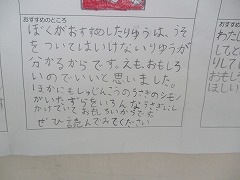 おすすめのところ
ぼくがおすすめしたりゆうは、うそ
をついてはいけないりゆうが
分かるからです。えも、おもしろ
いのでいいと思いました。
ほかにもしゅじんこうのうさぎのシモン
がいたずらをいろんなうさぎにし
かけていておもしろいからです
ぜひ読んでみてください
おすすめの
わたし
してと
りして
おもし
ほしい